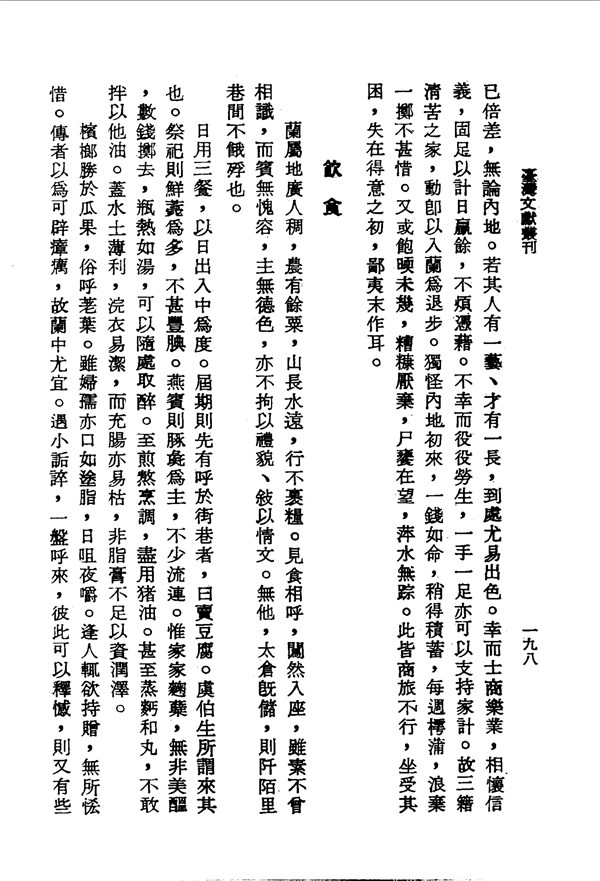 臺灣文獻叢刊
一九八
已倍差，無論內地。若其人有一藝、才有一長，到處尤易出色。幸而士商樂業，相懷信
義，固足以計日贏餘，不煩憑藉。不幸而役役勞生，一手一足亦可以支持家計。故三籍
清苦之家，動卽以入蘭爲退步。獨怪內地初來，一錢如命，稍得積蓄，每週樗蒲，浪棄
一擲不甚惜。又或飽暖未幾，糟糠厭棄，尸饔在望，萍水無踪。此皆商旅不行，坐受其
困，失在得意之初，鄙夷末作耳。
飮食
蘭屬地廣人稠，農有餘粟，山長水遠，行不裹糧。見食相呼，闖然入座，雖素不曾
相識，而賓無愧容，主無德色，亦不拘以禮貌、敍以情文。無他，太倉旣儲，則阡陌里
巷間不餓殍也。
日用三餐，以日出入中爲度。屆期則先有呼於街巷者，曰賣豆腐。虞伯生所謂來其
也。祭祀則鮮薧爲多，不甚豐腆。燕賓則豚彘爲主，不少流連。惟家家麴蘖，無非美醞
，數錢擲去，瓶熱如湯，可以隨處取醉。至煎熬烹調，盡用猪油。甚至蒸麪和丸，不敢
拌以他油。蓋水土薄利，浣衣易潔，而充腸亦易枯，非脂膏不足以資潤澤。
檳榔勝於瓜果，俗呼荖葉。雖婦孺亦口如塗脂，日咀夜嚼。逢人輒欲持贈，無所恡
惜。傳者以爲可辟瘴癘，故蘭中尤宜。遇小詬誶，一盤呼來，彼此可以釋憾，則又有些